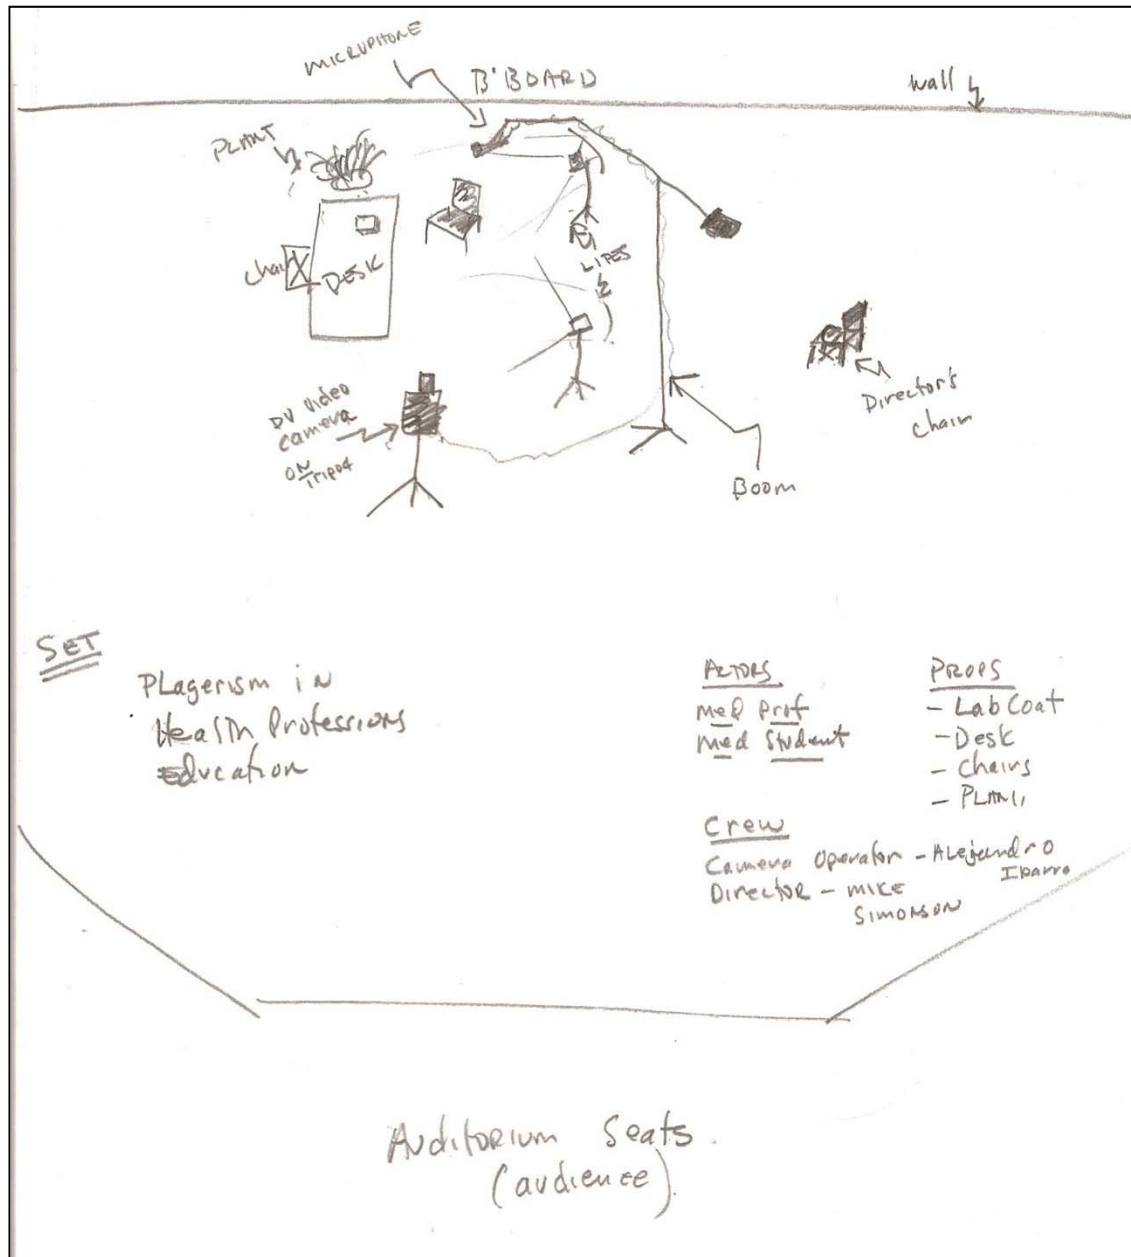 MICROPHONE
B'BOARD
wall
PLANT
chair
DESK
LITES
DV Video
camera
ON
Tripod
Director's
chair
Boom
SET
PLagerism in
Health Professions
Education
ACTORS
med Prof
med Student
PROPS
- Lab Coat
- Desk
- Chairs
- PLANT
Crew
Camera Operator - Alejandro
Ibarro
Director - MIKE
SIMONSON
Auditorium Seats
(audience)